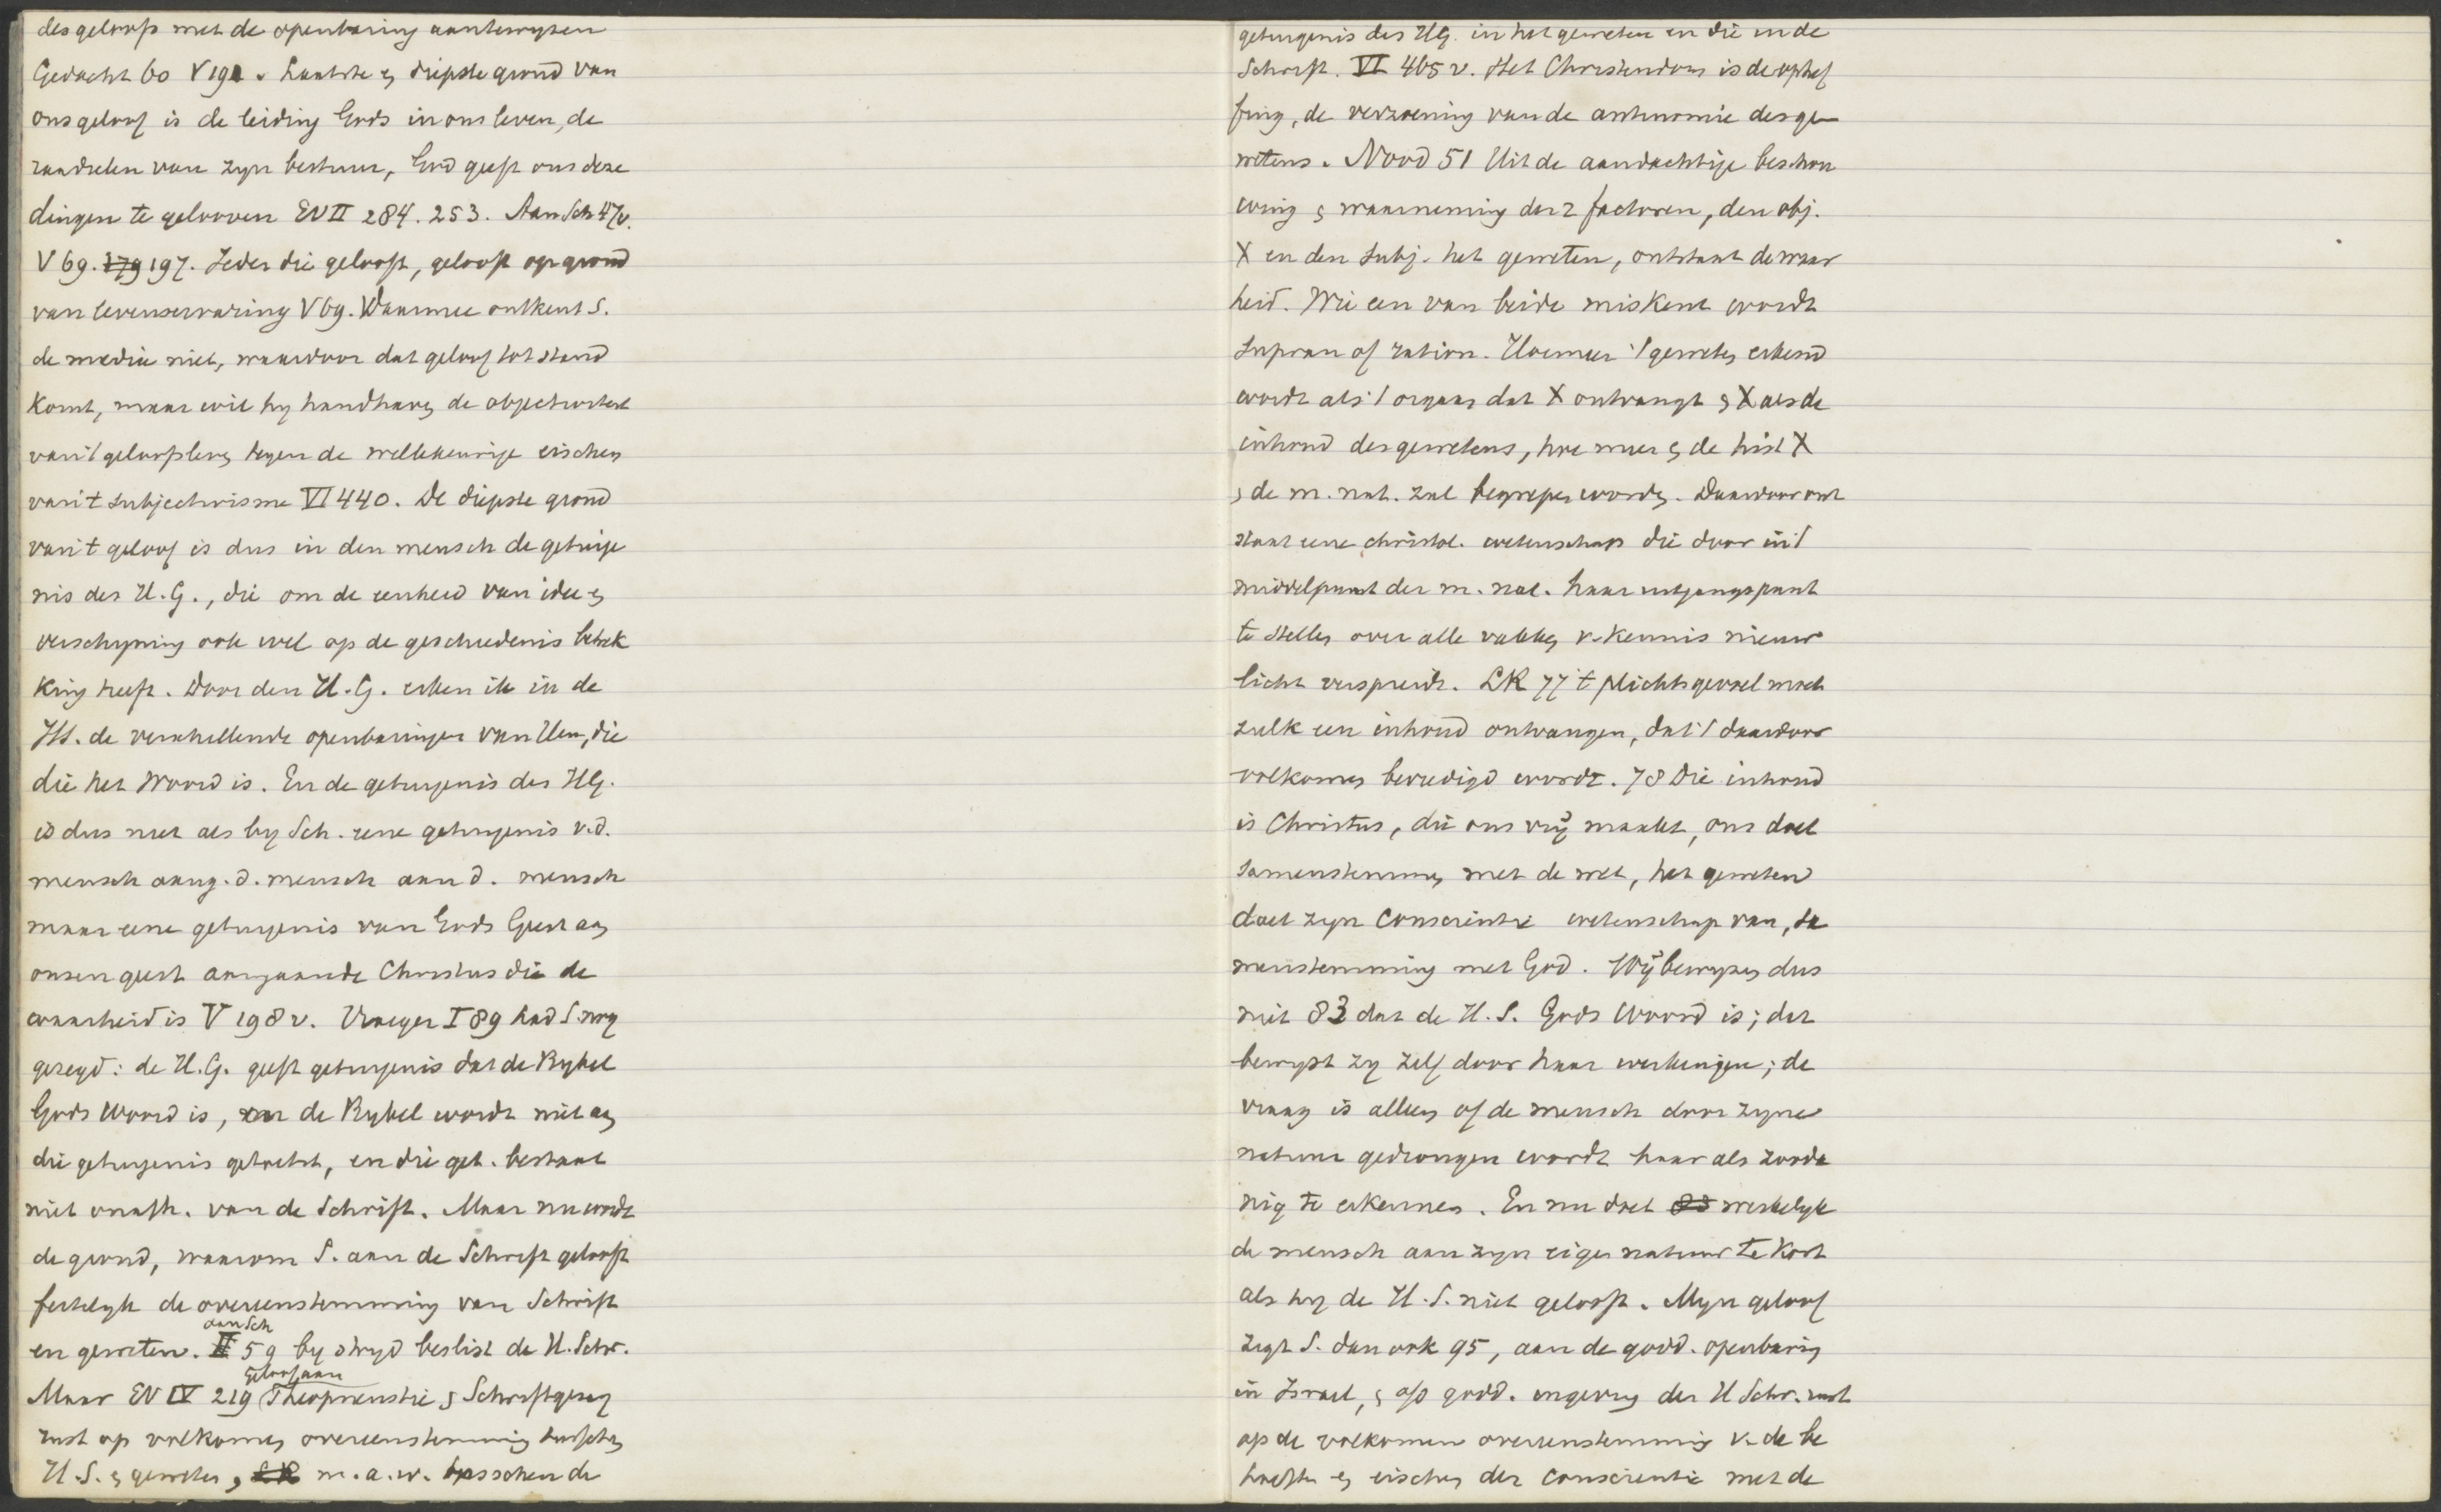 des geloofs met de openbaring aantewyzen
Gedacht 60 V 191. Laatste en diepste grond van
ons geloof is de leiding Gods in ons leven, de
raadselen van zyn bestuur, God geeft ons deze
dingen te gelooven EV II 284. 253. Aan Sch 47v.
V 69. 179 197. Ieder die gelooft, gelooft op grond
van levenservaring V 69. Daarmee ontkent S.
de media niet, waardoor dat geloof tot stand
komt, maar wil hy handhaven de objectiviteit
van 't geloofsleven tegen de willekeurige eischen
van 't subjectivisme VI 440. De diepste grond
van 't geloof is dus in den mensch de getuige
nis des H.G., die om de eenheid van idee en
verschyning ook wel op de geschiedenis betrek
king heeft. Door den H.G. erken ik in de
HS. de verschillende openbaringen van Hem, die
die het Woord is. En de getuigenis des HG.
is dus niet als by Sch. eene getuigenis v.d.
mensch aang. d. mensch aan d. mensch
maar eene getuigenis van Gods Geest aan
onzen geest aangaande Christus die de
waarheid is V 198 v. Vroeger I 89 had S. nog
gezegd: de H.G. geeft getuigenis dat de Bybel
Gods Woord is, maar de Bybel wordt niet aan
die getuigenis getoetst, en die get. bestaat
niet onafh. van de Schrift. Maar nu wordt
de grond, waarom S. aan de Schrift gelooft
feitelyk de overeenstemming van Schrift
aan Sch
en geweten. II 59 by stryd beslist de H. Schr.
geloof aan
Maar EV IV 219 Theopneustie en Schriftgezag
rust op volkomen overeenstemming tusschen
H.S. en geweten, LK m.a.w. tusschen de
getuigenis des HG. in het geweten en die in de
Schrift. VI 465 v. Het Christendom is de ophef
fing, de verzoening van de antinomie des ge
wetens. Nood 51 Uit de aandachtige beschou
wing en waarneming der 2 factoren, den obj.
X en den subj. het geweten, ontstaat de waar
heid. Wie een van beide miskent wordt
supran of ration. Hoe meer 't geweten erkend
wordt als 't orgaan dat X ontvangt en X als de
inhoud des gewetens, hoe meer en de hist X
en de m. nat. zal begrepen worden. Daardoor ont
staat eene christel. wetenschap die door in 't
middelpunt der m. nat. haar uitgangspunt
te stellen over alle vakken v. kennis nieuw
licht verspreidt. LK 77 't plichtsgevoel moet
zulk een inhoud ontvangen, dat 't daardoor
volkomen bevredigd wordt. 78 Die inhoud
is Christus, die ons vrij maakt, ons doet
samenstemmen met de wet, het geweten
doet zyn conscientie wetenschap van, sa
menstemming met God. Wij bewyzen dus
niet 83 dat de H.S. Gods Woord is; dat
bewyst zy zelf door haar werkingen; de
vraag is alleen of de mensch door zyne
natuur gedrongen wordt haar als zooda
nig te erkennen. En nu doet 83 werkelyk
de mensch aan zyn eigen natuur te kort
als hy de H.S. niet gelooft. Myn geloof
zegt S. dan ook 95, aan de godd. openbaring
in Israel, en a/o godd. ingeving der H Schr. rust
op de volkomen overeenstemming v. de be
hoeften en eischen der conscientie met de